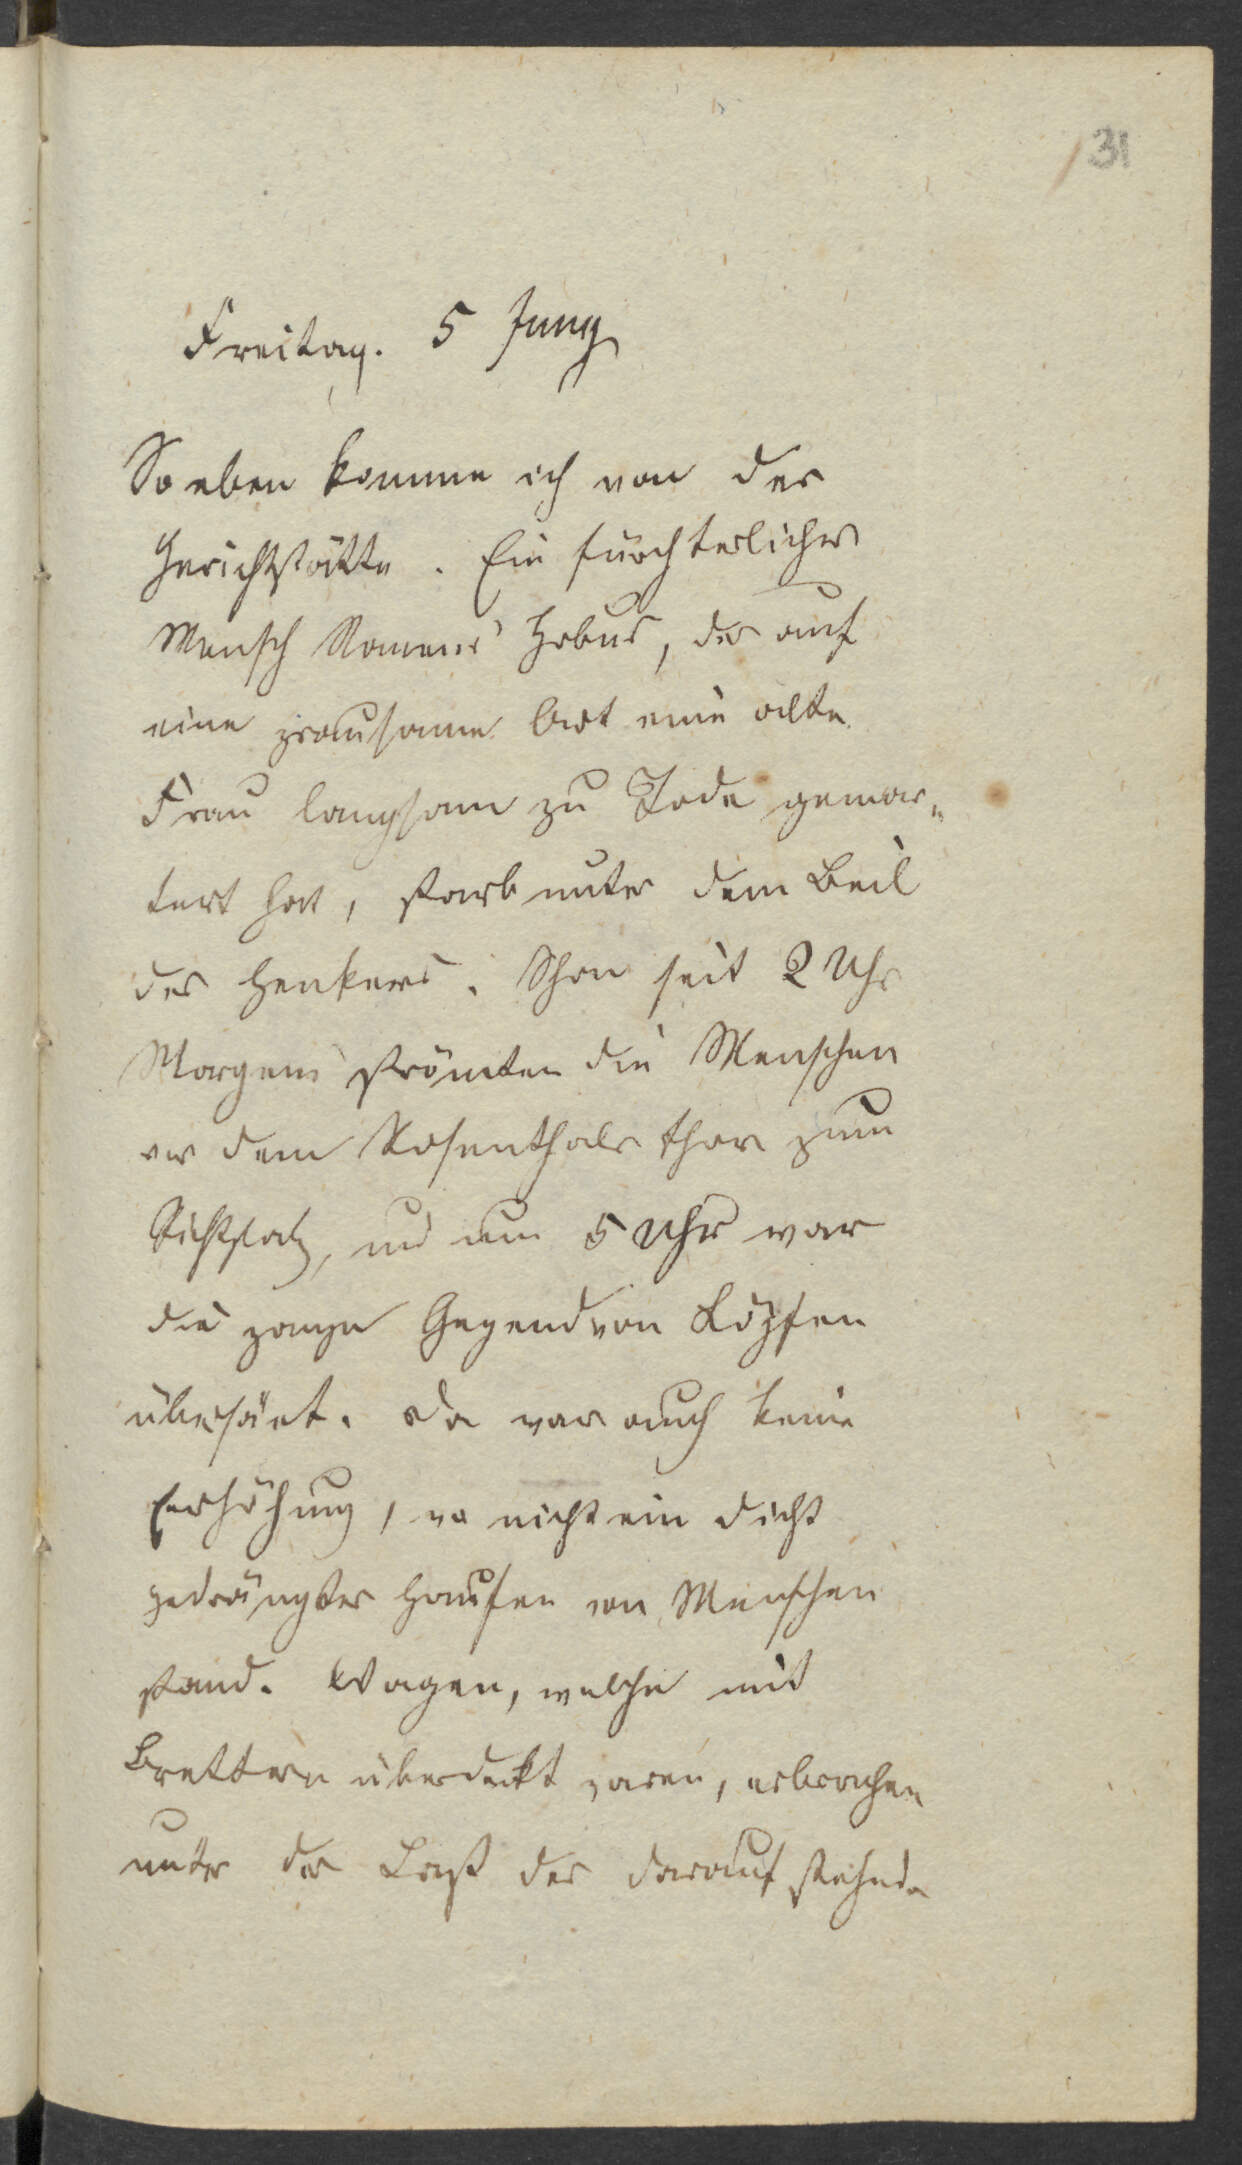 31
Freitag. 5 Juny
So eben komme ich von der
Gerichtstätte. Ein fürchterlicher
Mensch Namens Hobus, der auf
eine grausame Art eine alte
Frau langsam zu Tode gemar„
tert hat, starb unter dem Beil
des Henkers. Schon seit 2 Uhr
Morgens strömten die Menschen
vor dem Rosenthaler thor zum
Richtplatz, und um 5 Uhr war
die ganze Gegend von Köpfen
übersäet. Da war auch keine
Erhöhung, wo nicht ein dicht
gedrängter Haufen von Menschen
stand. Wagen, welche mit
Brettern überdeckt waren, erbrachen
unter der Last der darauf stehnde